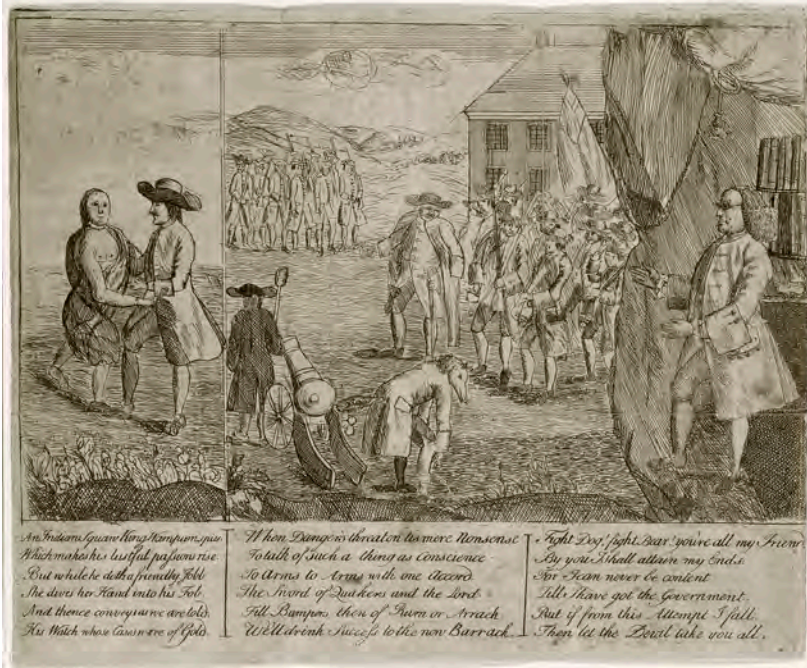 An Indian Squaw King Wampum spies
Which makes his lustful passions rise
But while he doth a friendly Jobb
She dives her Hand into his Fob
And thence conveys as we are told
His Watch whose Cases were of Gold.
When Dangers threaten tis mere Nonsense
To talk of such a thing as Conscience
To Arms to Arms with one Accord
The Sword of Quakers and the Lord
Fill Bumpers then of Rum or Arrack
We'll drink Success to the new Barrack.
Fight Dog! fight Bear! you're all my Friend
By you I shall attain my Ends
For I can never be content
Till I have got the Government
But if from this Attempt I fall
Then let the Devil take you all.